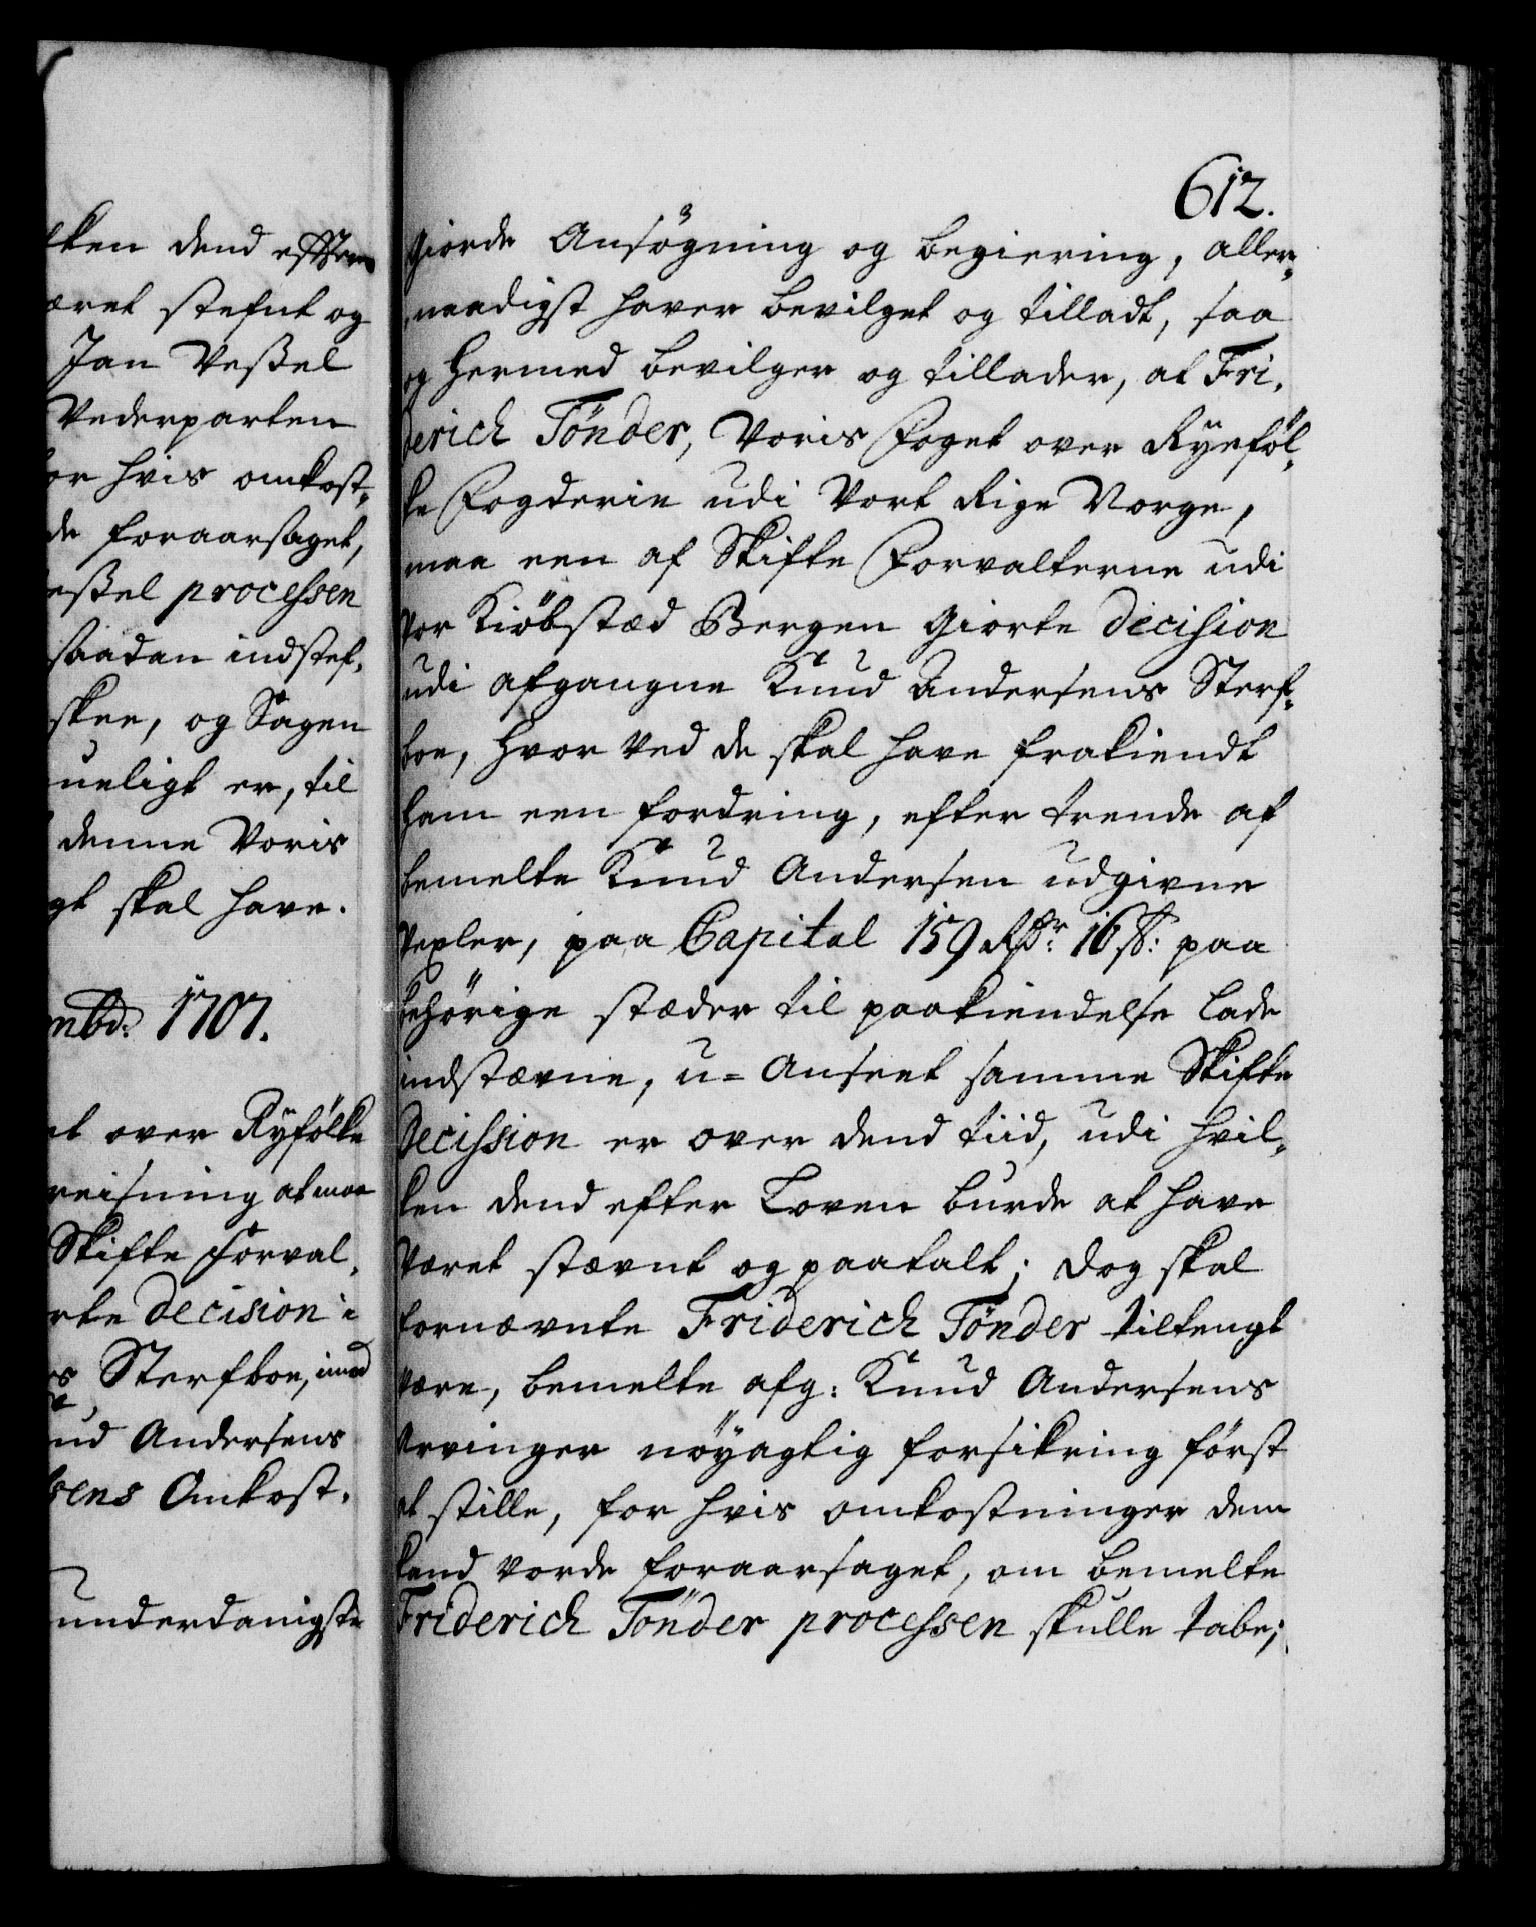 ken dend effter
æret stefnt og
Jan Veßel
Vederparten
or hvis omkost-
de foraarsaget,
eßel processen
saadan indstef-
skee, og Sagen
ueligt er, til
denne Voris
gt skal have.
mbd: 1707.
et over Ryfølke
reisning at maa
Skifte Forval-
rte decision i
s Sterfboe, imod
ud Andersens
sens Omkost-
underdanigste
612.
giorde Ansøgning og begiering, aller-
naadigst haver bevilget og tilladt, saa
og hermed bevilger og tillader, at Fri-
derich Tönder, Voris Foget over Ryeföl-
ke Fogderie udi Vort Rige Norge,
maa een af Skifte Forvalterne udi
vor Kiöbstæd Bergen giorte Decision
udi afgangne Knud Andersens Sterf-
boe, hvor ved de skal have frakiendt
ham een fordring, efter trende af
bemelte Knud Andersen udgivne
Vexler, paa Capital 159 Rdr: 16 ß: paa
behörige stæder til paakiendelse lade
indstævne, u-anseet samme Skifte
Decission er over dend tiid, udi hvil-
ken dend efter Loven burde at have
Været stævnt og paatalt; dog skal
fornævnte Friderich Tönder tiltengt
være, bemelte afg: Knud Andersens
Arvinger nöyagtig forsikring först
at stille, for hvis omkostninger dem
kand vorde foraarsaget, om bemelte
Friderich Tönder processen skulle tabe;